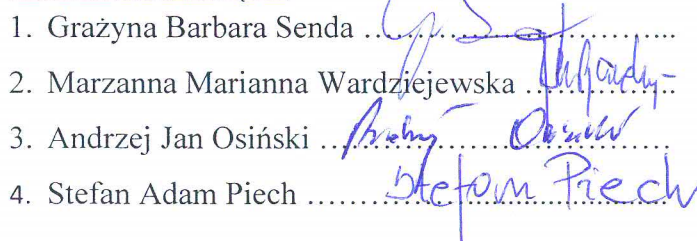 1. Grażyna Barbara Senda ……………………...
2. Marzanna Marianna Wardziejewska ……………..
3. Andrzej Jan Osiński ……………………………
4. Stefan Adam Piech ……………………………
Stefan Piech